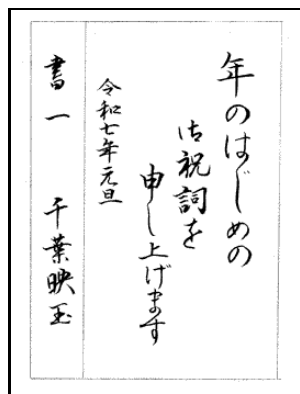 年のはじめの
御祝詞を
申し上げます
令和七年元旦
書一 千葉映玉